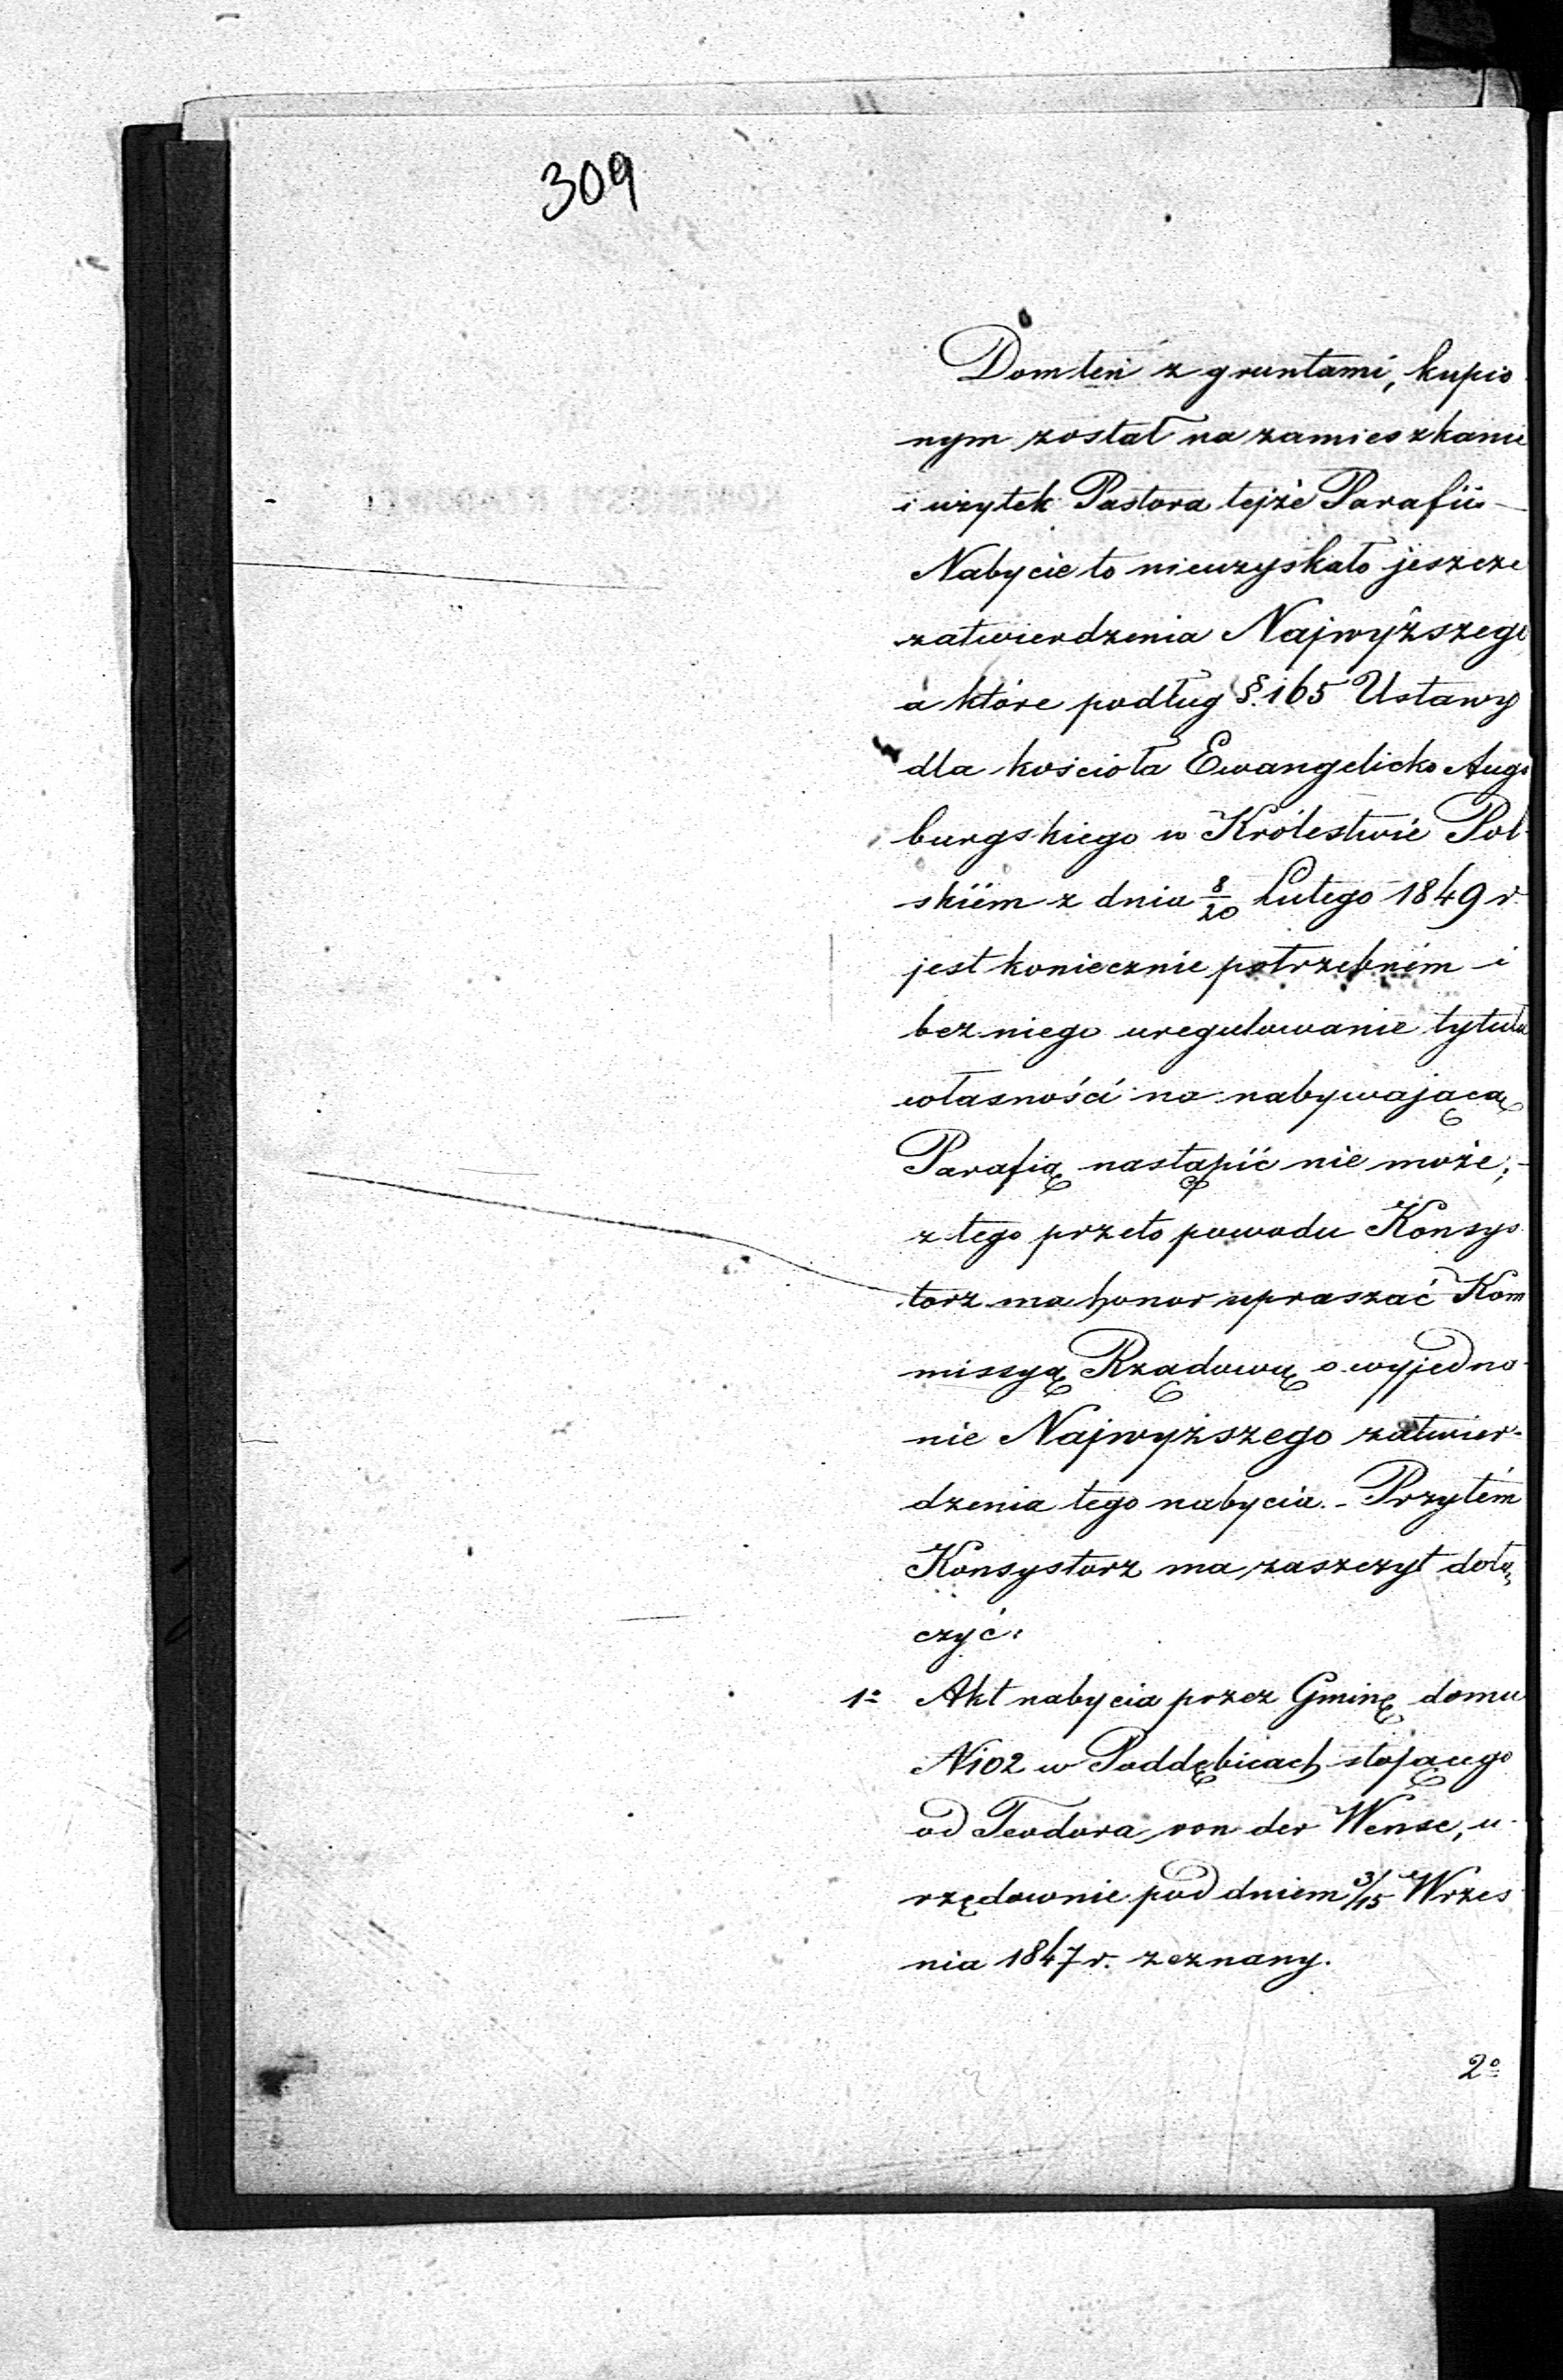 309
Dom ten z gruntami, kupio
nym został na zamieszkanie
i użytek Pastora tejże Parafii —
Nabycie to nieuzyskało jeszcze
zatwierdzenia Najwyższego
a które podług §. 165 Ustawy
dla kościoła Ewangelicko Augs
burgskiego w Królestwie Pol-
skiém z dnia 8/20 Lutego 1849 r.
jest koniecznie potrzebném i
bez niego uregulowanie tytułu
własności na nabywającą
Parafią nastąpić nie może; -
z tego przeto powodu Konsys
torz ma honor upraszać Kom
missyą Rządową o wyjedna-
nie Najwyższego zatwier-
dzenia tego nabycia. - Przytém
Konsystorz ma zaszczyt dołą
czyć:
1º Akt nabycia przez Gminę domu
N 102 w Poddębicach stojącego
od Teodora von der Wense, u-
rzędownie pod dniem 3/15 Wrześ
nia 1847 r. zeznany.
2º